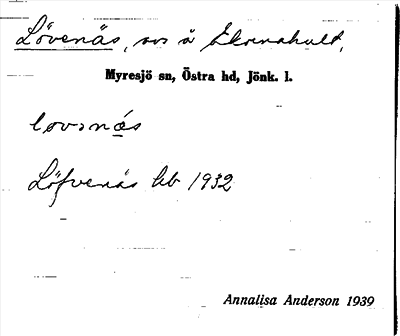 Lövenäs, svs å Ekornahult,
Myresjö sn, Östra hd, Jönk. l.
lovənäs
Löfvenäs lib 1932
Annalisa Anderson 1939